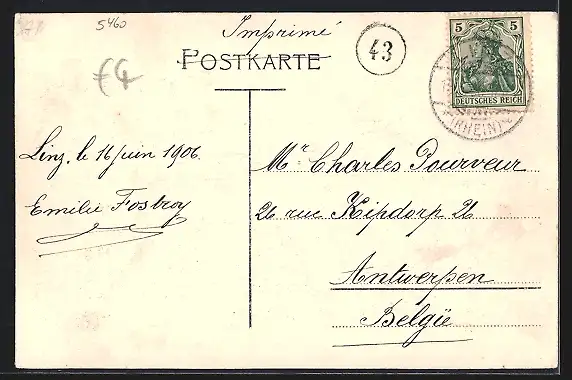 5460
Imprimé
POSTKARTE
43
5 5
DEUTSCHES REICH
(RHEIN)
€4
Linz, le 16 juin 1906.
Emilie Fostroy
Mr Charles Pourveur
26 rue Kipdorp 26
Antwerpen
Belgïe